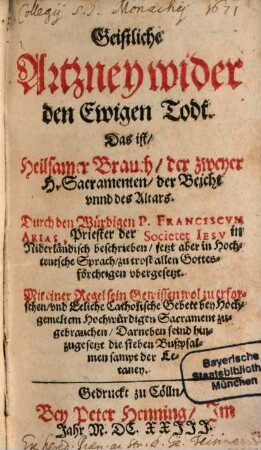 Collegij S.J. Monachij 1621
Geistliche
Artzney wider
den Ewigen Todt.
Das ist/
Heilsamer Brauch/ der zweyer
H. Sacramenten/ der Beicht
vnnd des Altars.
Durch den Würdigen P. FRANCISCVM
ARIAS Priester der Societet IESV in
Niderländisch beschrieben/ jetzt aber in Hoch-
teutsche Sprach/ zu trost allen Gottes-
förchtigen vbergesetzt.
Mit einer Regel sein Gewissen wol zu erfor-
schen/ vnd etliche Catholische Gebett bey Hoch-
gemeltem Hochwürdigen Sacrament zu-
gebrauchen/ Darneben seind hin-
zugesetzt die sieben Bußpsal-
men sampt der Le-
taney.
Bayerische
Staatsbibliothek
München
Gedruckt zu Cölln/
Bey Peter Henning/ Im
Jahr M. DC. XXIII.